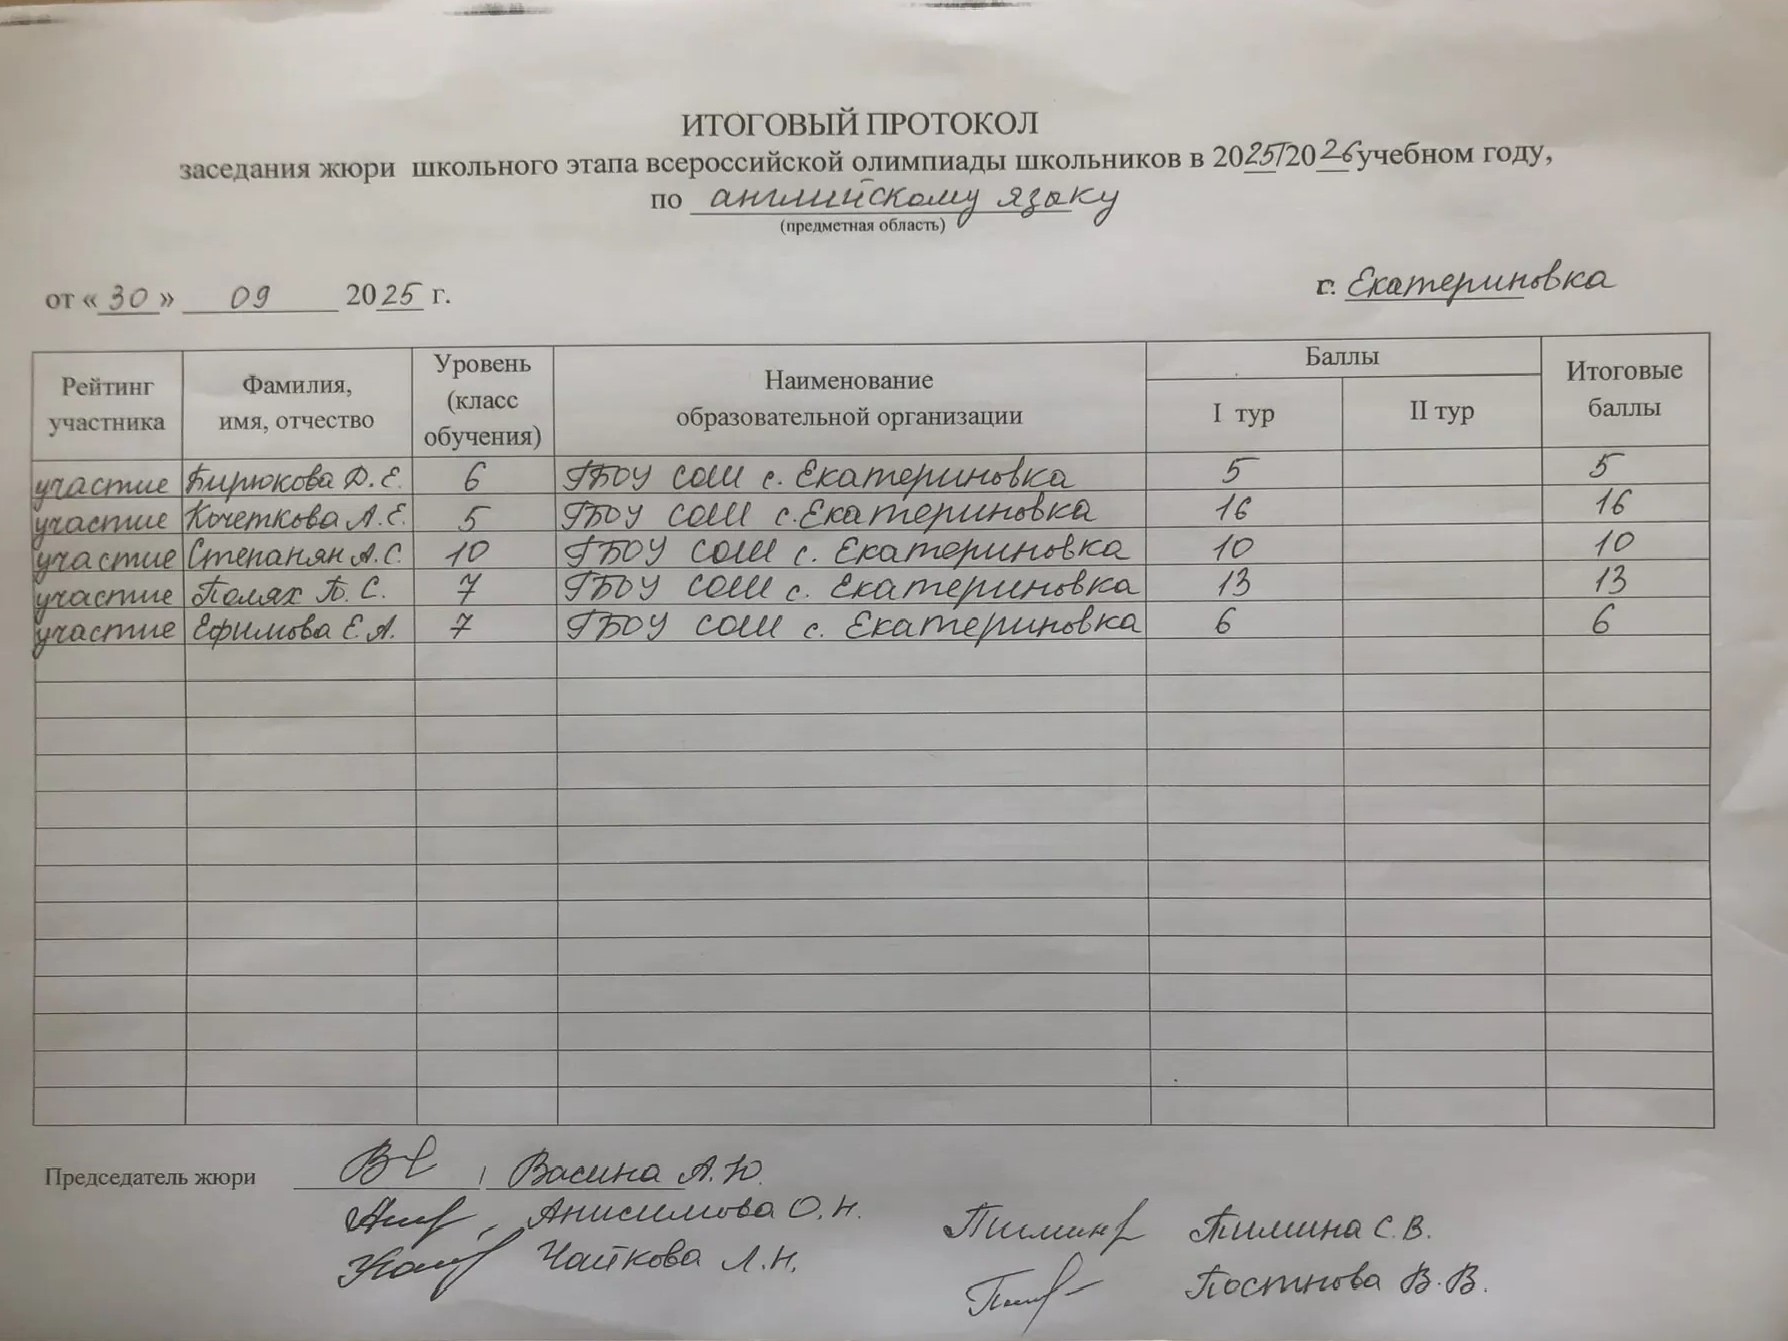 ИТОГОВЫЙ ПРОТОКОЛ
заседания жюри школьного этапа всероссийской олимпиады школьников в 2025/2026 учебном году,
по английскому языку
(предметная область)
от «30» 09 2025 г. г. Екатериновка
Рейтинг участника Фамилия, имя, отчество Уровень (класс обучения) Наименование образовательной организации Баллы I тур II тур Итоговые баллы
участие Бирюкова Д.Е. 6 ГБОУ СОШ с. Екатериновка 5 5
участие Кочеткова А.Е. 5 ГБОУ СОШ с. Екатериновка 16 16
участие Степанян А.С. 10 ГБОУ СОШ с. Екатериновка 10 10
участие Полях Б. С. 7 ГБОУ СОШ с. Екатериновка 13 13
участие Ефимова Е.А. 7 ГБОУ СОШ с. Екатериновка 6 6
Председатель жюри Васина А.Ю.
Анисимова О.Н.
Тимина С.В.
Чайкова Л.Н.
Постнова В.В.